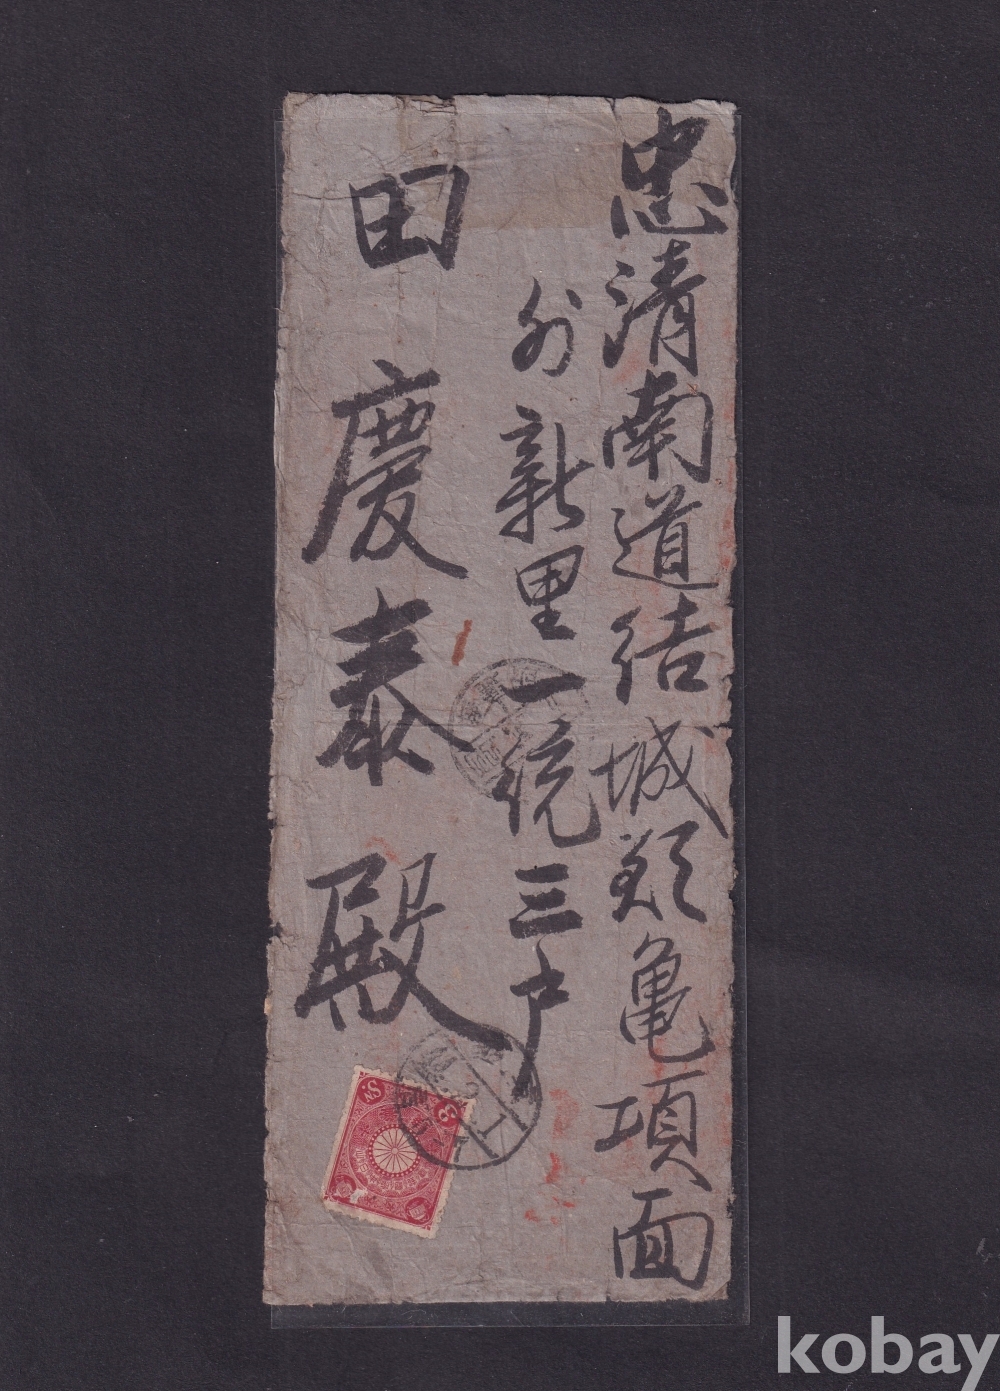 忠清南道結城郡亀項面
外新里一統三戸
田慶泰殿
3 Sn.
kobay